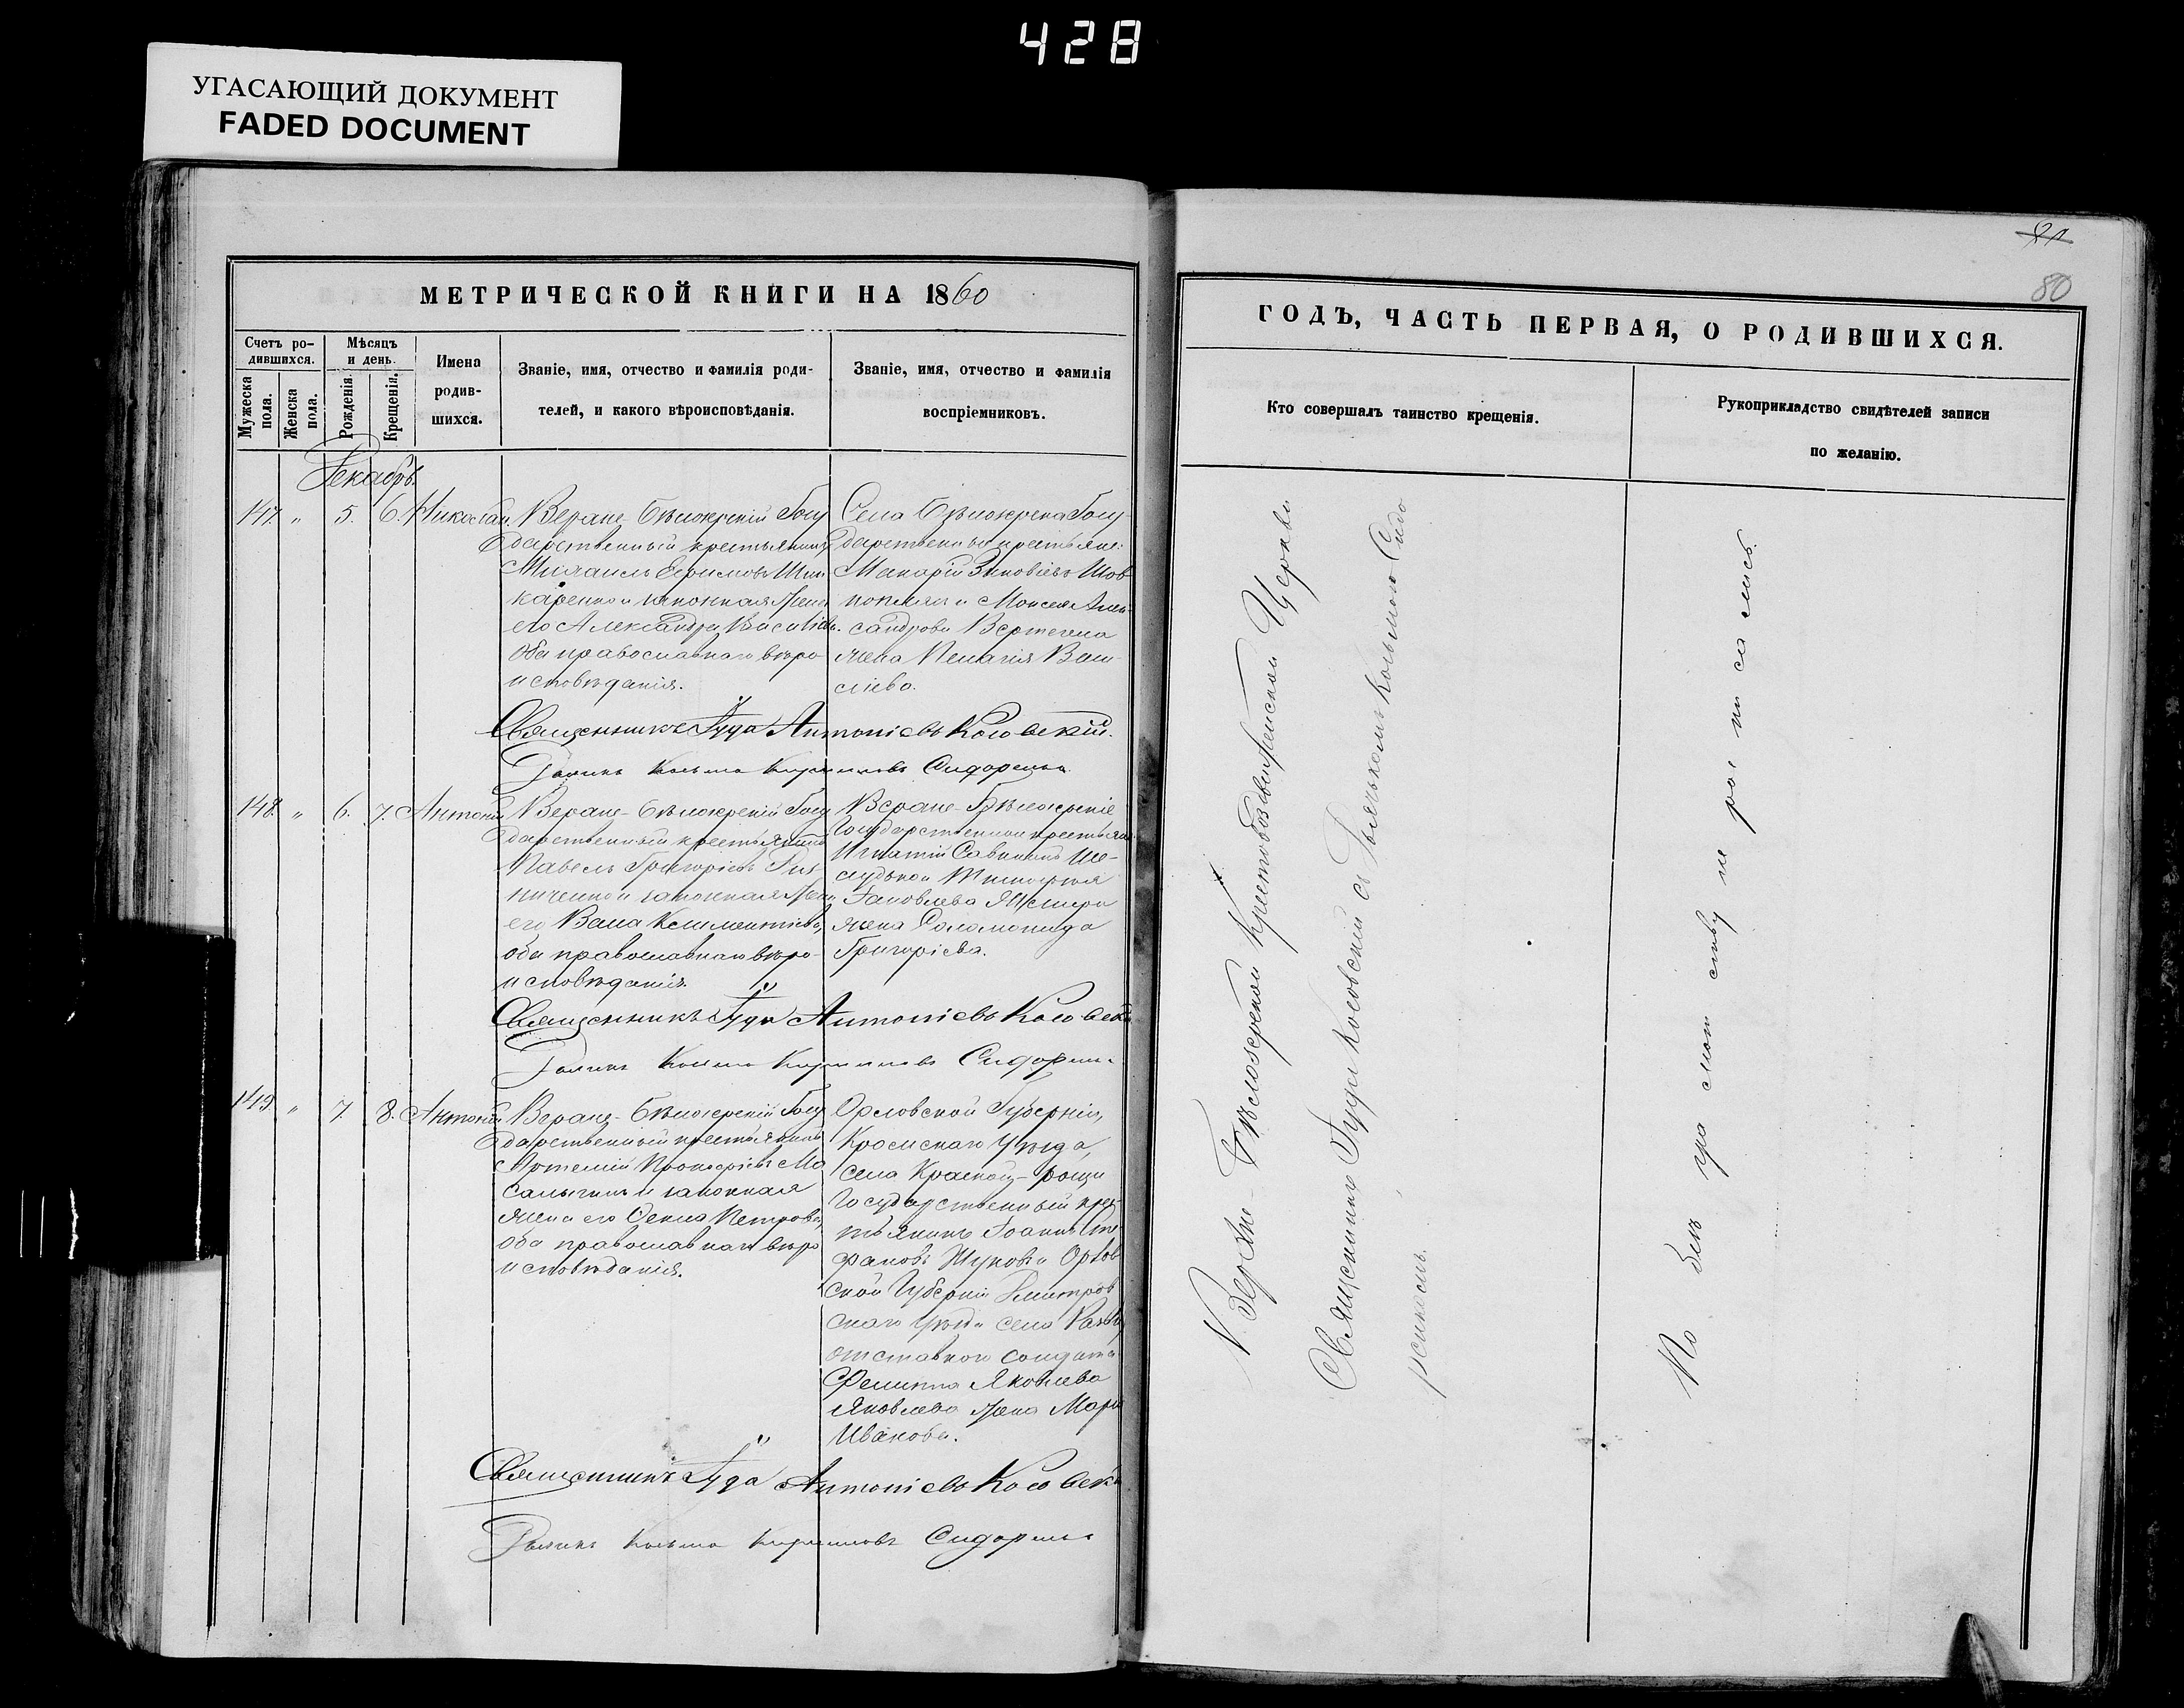 428
УГАСАЮЩИЙ ДОКУМЕНТ
FADED DOCUMENT
МЕТРИЧЕСКОЙ КНИГИ НА 1860
Счетъ ро-
дившихся.
Мужеска
пола.
Женска
пола.
Мѣсяцъ
и день.
Рожденія.
Крещенія.
Имена
родив-
шихся.
Званіе, имя, отчество и фамилія роди-
телей, и какого вѣроисповѣданія.
Званіе, имя, отчество и фамилія
воспріемниковъ.
Декабрь.
147. " 5. 6. Николай.
Верхне-Бѣлозерскій Госу
дарственный крестьянинъ
Михаилъ
каренко и законная жена
его Александра Василіева.
оба православнаго вѣро-
исповѣданія.
Села Бѣлозерка Госу-
дарственные крестьяне:
Макарій Зиновіевъ Шов
и Моисея Алек-
сандрова
жена Пелагія Васи-
ліева.
Священникъ Іуда Антоніевъ Косовскій.
Козьма Кирилловъ Сидоренко
148. " 6. 7. Антоній
Верхне-Бѣлозерскій Госу
дарственный крестьянинъ
Павелъ Григоріевъ
и законная жена
его Климентіева,
оба православнаго вѣро-
исповѣданія.
Верхне-Бѣлозерскіе
Государственные крестьяне
Игнатій Ше-
Яковлева
жена Соломонида
Григоріева.
Священникъ Іуда Антоніевъ Косовскі
Козьма Кирилловъ Сидоренко
149. " 7. 8. Антоній
Верхне-Бѣлозерскій Госу
дарственный крестьянинъ
Артемій Прокофіевъ Мо
и законная
жена его Петрова,
оба православнаго вѣро
исповѣданія.
Орловской Губерніи,
Кромскаго Уѣзда,
села Красной-рощи
Государственный крес-
тьянинъ Іоаннъ Сте
фановъ Жуковъ и Орлов
ской Губерніи Дмитров
скаго Уѣзда села
отставного солдата
Филиппа Яковлева
Яковлева жена Марія
Иванова.
Священникъ Іуда Антоніевъ Косовскі
Козьма Кирилловъ Сидоренко
80
ГОДЪ, ЧАСТЬ ПЕРВАЯ, О РОДИВШИХСЯ.
Кто совершалъ таинство крещенія.
Рукоприкладство свидѣтелей записи
по желанію.
Верхне-Бѣлозерской Крестовоздвиженской Церкви
Священникъ Іуда Косовскій съ Козьмою Сидо
ренкомъ.
По безъ гра мот ству не рос пи са лись.